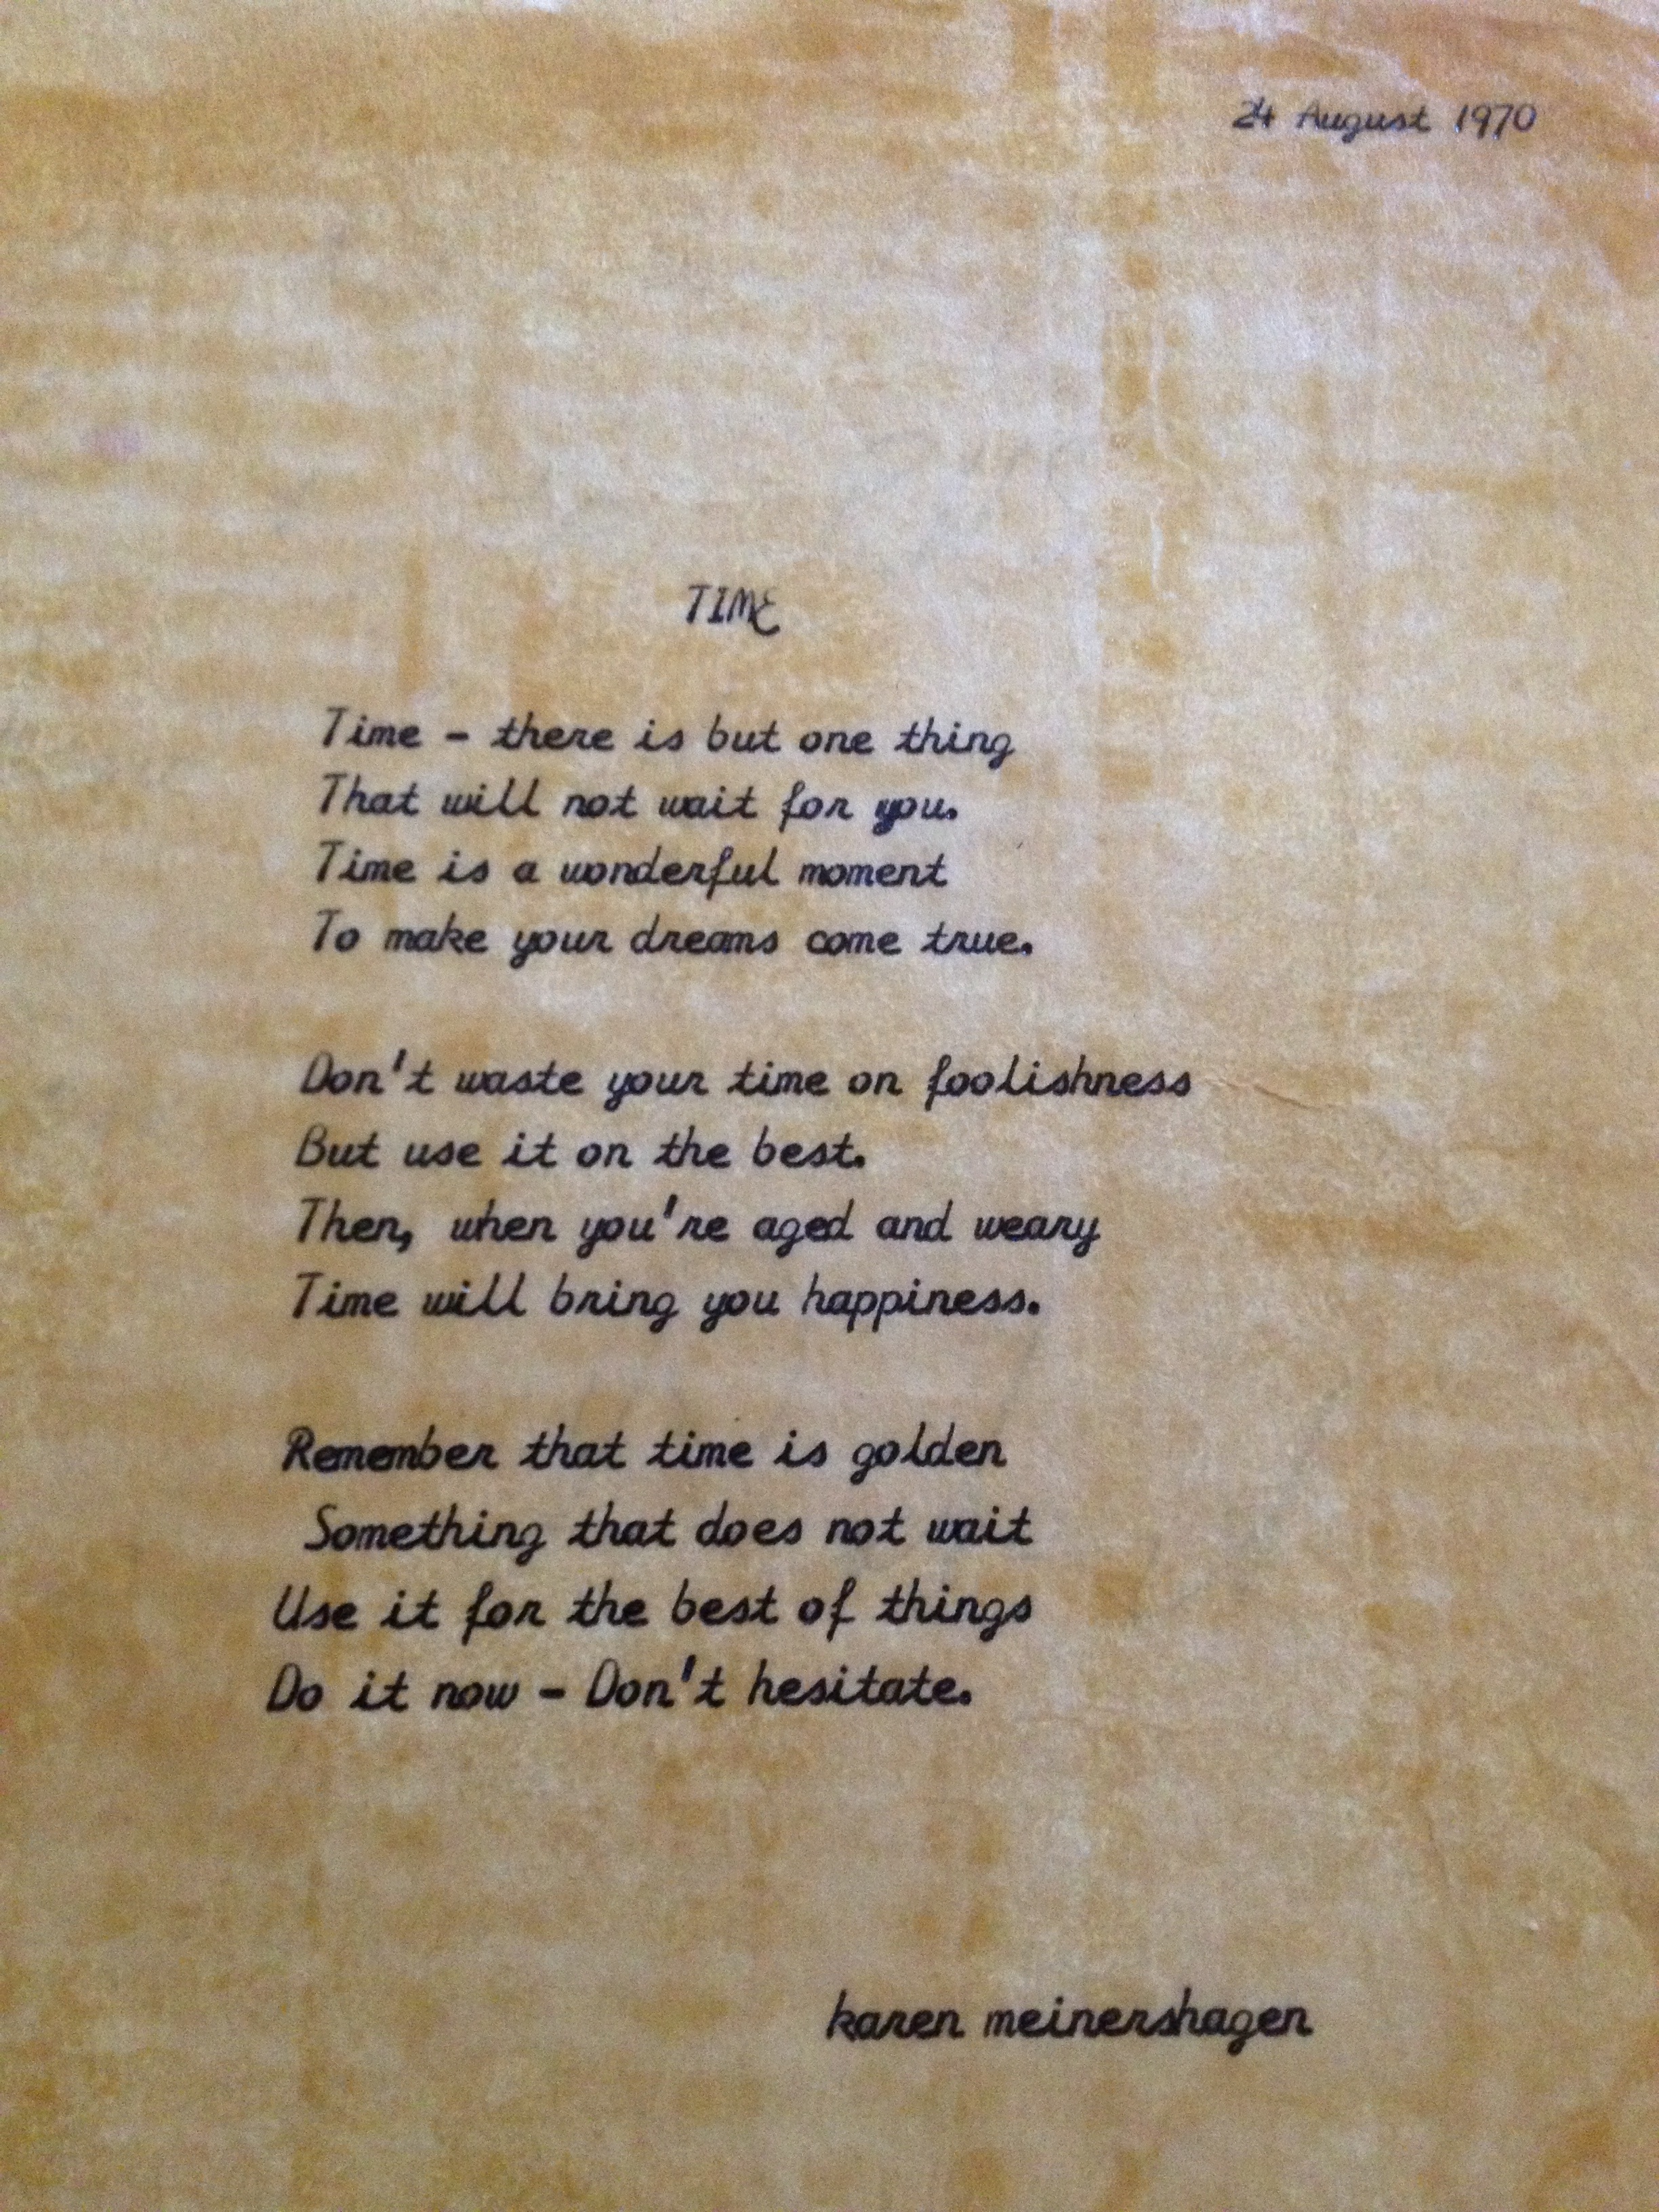 24 August 1970
TIME
Time - there is but one thing
That will not wait for you.
Time is a wonderful moment
To make your dreams come true.
Don't waste your time on foolishness
But use it on the best.
Then, when you're aged and weary
Time will bring you happiness.
Remember that time is golden
Something that does not wait
Use it for the best of things
Do it now - Don't hesitate.
karen meinershagen